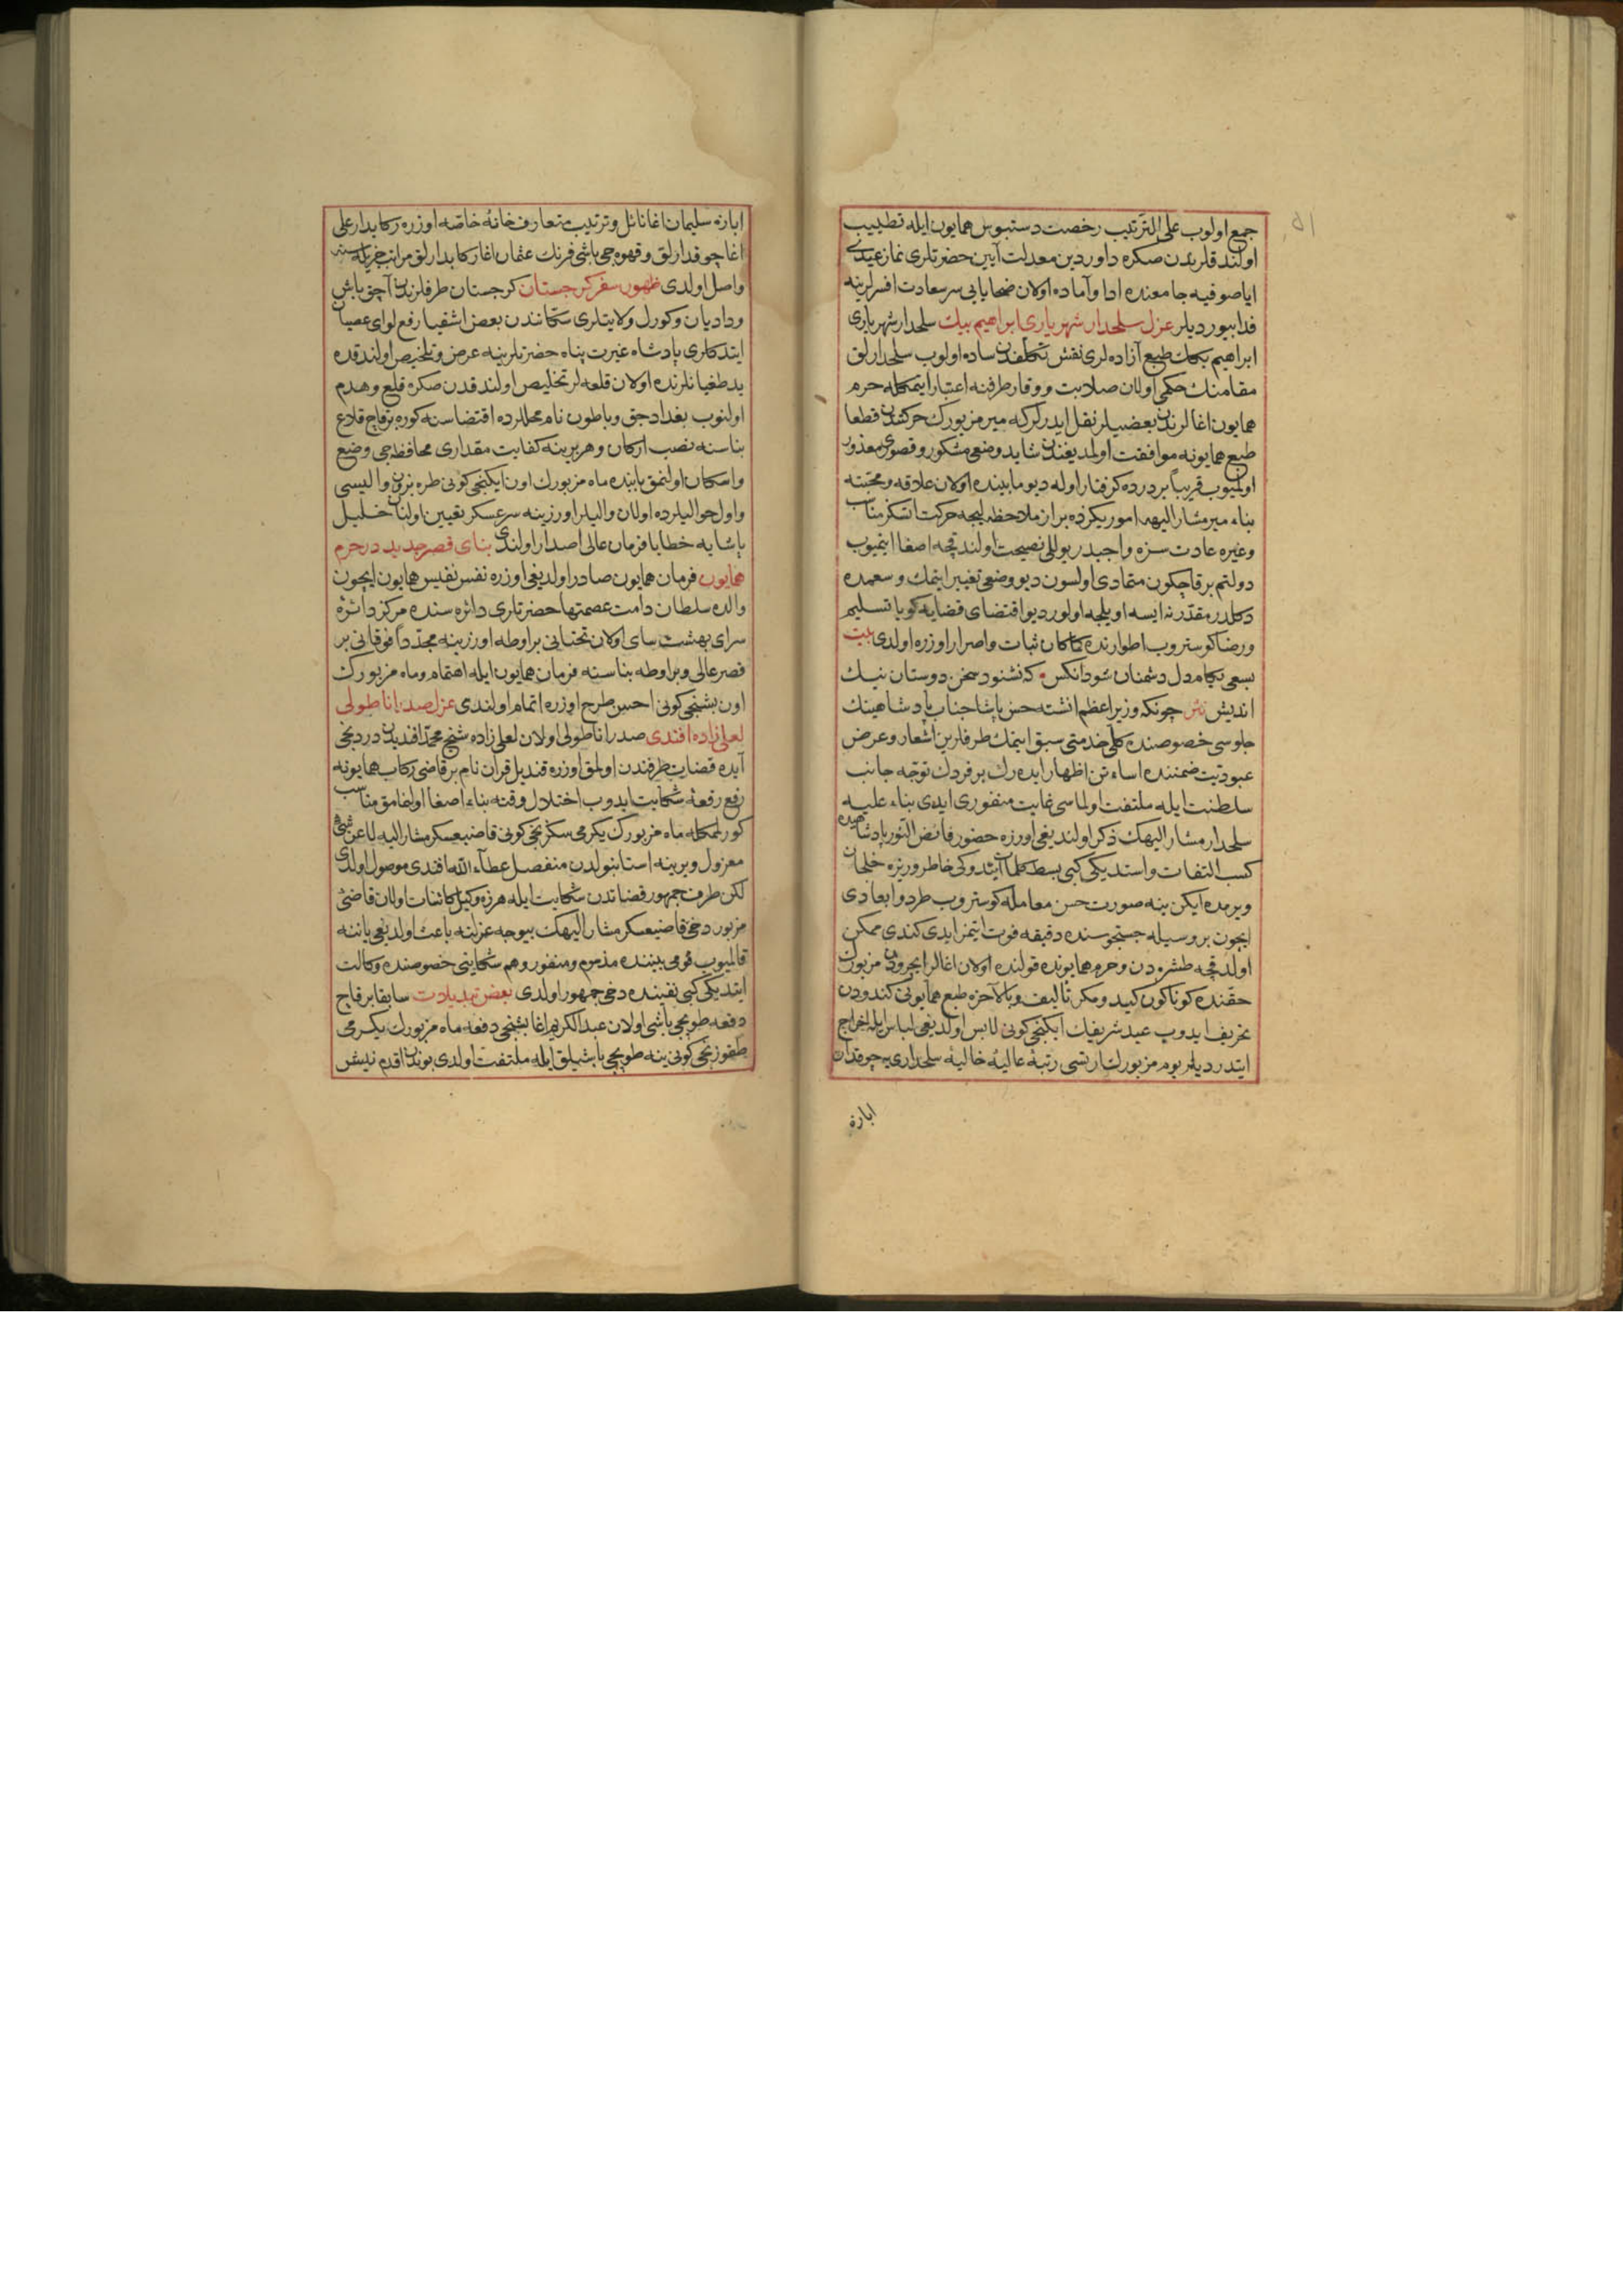 جمع اولوب علی الترتیب رخصت دستبوس همایون ایله تطییب
اولندقلریدن صکره داور دین معدلت آیین حضرتلری نماز عیدی
ایاصوفیه جامعنده ادا و آماده اولان ضحایایی سر سعادت افسرلرینه
فدا بیوردیلر عزل سلحدار شهریاری ابراهیم بیك سلحدار شهریاری
ابراهیم بكك طبع آزاده لری نقش تكلفدن ساده اولوب سلحدارلق
مقامنك حكمی اولان صلابت و وقار طرفنه اعتبار ایتمكله حرم
همایون اغالرندن بعضیلر نقل ایدرلر كه میر مزبورك حركتندن قطعا
طبع همایونه موافقت اولمدیغندن شاید وضعی مشكور و قصوری معذور
اولمیوب قریباً بر درده كرفتار اوله دیو مابینده اولان علاقه و محبته
بناء میر مشار الیهه اموریكزده براز ملاحظه لیجه حركت اتسكز مناسب
وغیره عادت سزه واجبدر یوللی نصیحت اولندقچه اصغا ایتمیوب
دولتم بر قاچ كون متمادی اولسون دیو وضعی تغییر ایتمك و سعمده
دكلدر مقدر نه ایسه اویلجه اولور دیو اقتضای قضایه كویا تسلیم
و رضا كوستروب اطوارنده كماكان ثبات و اصرار اوزره اولدی بیت
بسعی بكام دل دشمنان شود انكس كه نشنود سخن دوستان نیك
اندیش نثر چونكه وزیر اعظم انشته حسن پاشا جناب پادشاهینك
جلوسی خصوصنده كلی خدمتی سبق ایتمك طرفلرین اشعار و عرض
عبودیت ضمننده اساءتن اظهار ایده رك بر فردك توجه جانب
سلطنت ایله ملتفت اولماسی غایت منفوری ایدی بناء علیه
سلحدار مشار الیهك ذكر اولندیغی اوزره حضور فائض النور پادشاهیده
كسب التفات و استدیكی كبی بسط كلمات ایتدوكی خاطر وزیره خلجان
ویرمده ایكن ینه صورت حسن معامله كوستروب طرد و ابعادی
ایچون بر وسیله جستجوسنده دقیقه فوت ایتمز ایدی كندی ممكن
اولدقچه طشره دن و حرم همایونده قولنده اولان اغالر ایچرودن مزبورك
حقنده كوناكون كید و مكر تألیف و بالآخره طبع همایونی كندودن
تحریف ایدوب عید شریفك ایكنجی كونی لابس اولدیغی لباس ایله اخراج
ایتدردیلر یوم مزبورك ارتسی رتبهٔ عالیهٔ خالیهٔ سلحداری یه چوقدار
ابازه
ابازه سلیمان اغا نائل و ترتیب متعارف خانهٔ خاصه اوزره ركابدار علی
اغا چوقدارلق و قهوه جی باشی فرنك عثمان اغا ركابدارلق مراتب
واصل اولدی ظهور سفر كرجستان كرجستان طرفلرندن آچق باش
و دادیان و كورل ولایتلری سكانندن بعض اشقیا رفع لوای عصیان
ایتدكلری پادشاه غیرت پناه حضرتلرینه عرض و تلخیص اولندقده
ید طغیانلرنده اولان قلعه لر تخلیص اولندقدن صكره قلع و هدم
اولنوب بغدادجق و باطون نام محللرده اقتضاسنه كوره بر قاچ قلاع
بناسنه نصب اركان و هر برینه كفایت مقداری محافظه جی وضع
و اسكان اولنمق بابنده ماه مزبورك اون ایكنجی كونی طره بزون والیسی
و اول حوالیلرده اولان والیلر اوزرینه سرعسكر تعیین اولنان خلیل
پاشا یه خطابا فرمان عالی اصدار اولندی بنای قصر جدید در حرم
همایون فرمان همایون صادر اولدیغی اوزره نفس نفیس همایون ایچون
والده سلطان دامت عصمتها حضرتلری دائره سنده مركز دائرهٔ
سرای بهشت سای اولان تحتانی بر اوطه اوزرینه مجدداً فوقانی بر
قصر عالی و بر اوطه بناسنه فرمان همایون ایله اهتمام و ماه مزبورك
اون بشنجی كونی احسن طرح اوزره اتمام اولندی عزل صدر اناطولی
لعلی زاده افندی صدر اناطولی اولان لعلی زاده شیخ محمد افندیدن دردنجی
آیده قضاة طرفندن اولمق اوزره قندیل قران نام بر قاضی ركاب همایونه
رفع رقعهٔ شكایت ایدوب اختلال وقته بناء اصغا اولنمامق مناسب
كورلمكله ماه مزبورك یكرمی سكزنجی كونی قاضیعسكر مشار الیه لا عن شیٔ
معزول و یرینه استانبولدن منفصل عطاء الله افندی موصول اولدی
لكن طرف جمهور قضاتدن شكایت ایله هرزه وكیل كائنات اولان قاضیٔ
مزبور دخی قاضیعسكر مشار الیهك بیوجه عزلنه باعث اولدیغی یاننه
قالمیوب قومی بیننده مذموم و منفور و هم شكایتی خصوصنده وكالت
ایتدیكی كبی نفینده دخی جمهور اولدی بعض تبدیلات سابقا بر قاچ
دفعه طوپچی باشی اولان عبد الكریم اغا بشنجی دفعه ماه مزبورك یكرمی
طقوزنجی كونی ینه طوپچی باشیلق ایله ملتفت اولدی بوندن اقدم نیش